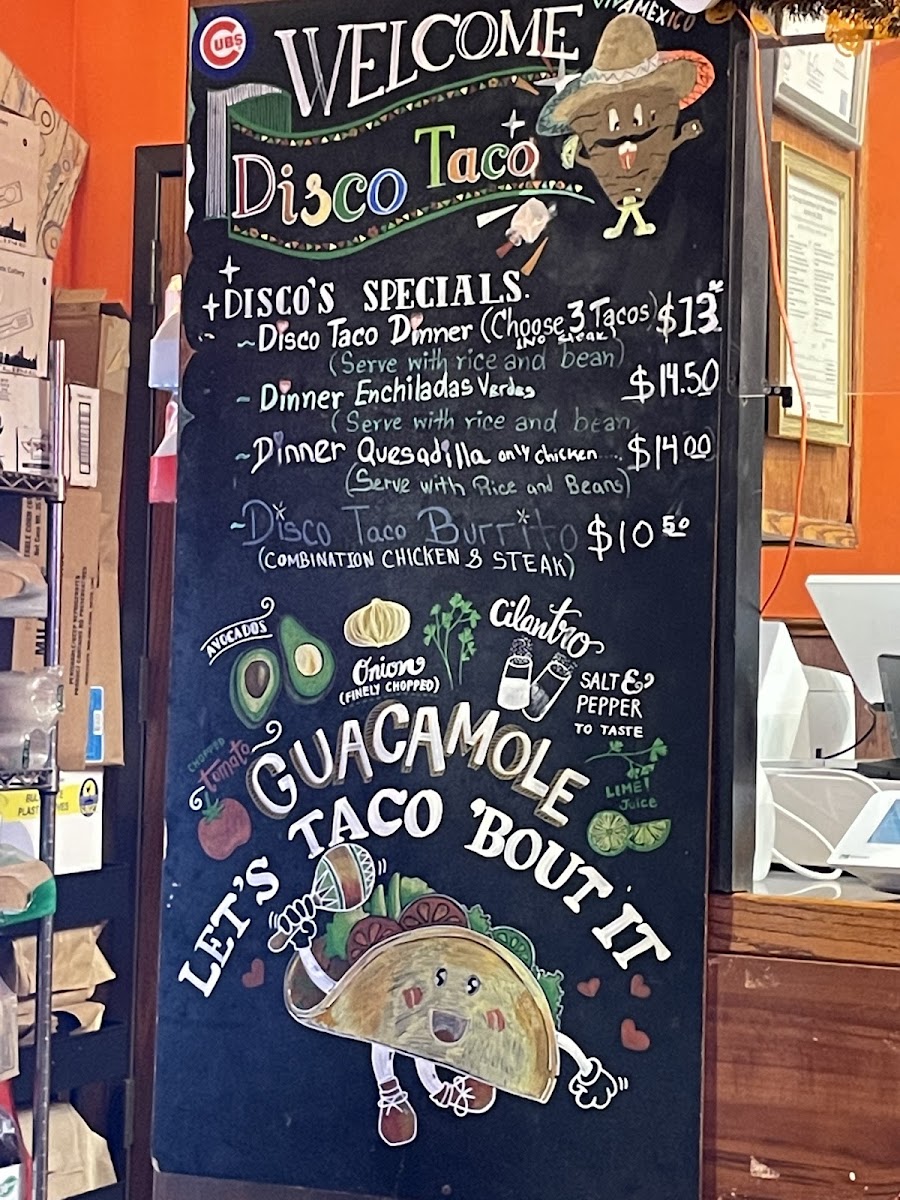 CUBS
VIVA MEXICO
WELCOME
Disco Taco
DISCO'S SPECIALS.
~Disco Taco Dinner (Choose 3 Tacos) $13
(NO STEAK)
(Serve with rice and bean)
~Dinner Enchiladas Verdes $14.50
(Serve with rice and bean
~Dinner Quesadilla only chicken.... $14 00
(Serve with Rice and Beans)
~Disco Taco Burrito $10 50
(COMBINATION CHICKEN & STEAK)
AVOCADOS
Onion
(FINELY CHOPPED)
Cilantro
SALT &
PEPPER
TO TASTE
CHOPPED
tomato
GUACAMOLE
LIME
Juice
LET'S TACO 'BOUT IT